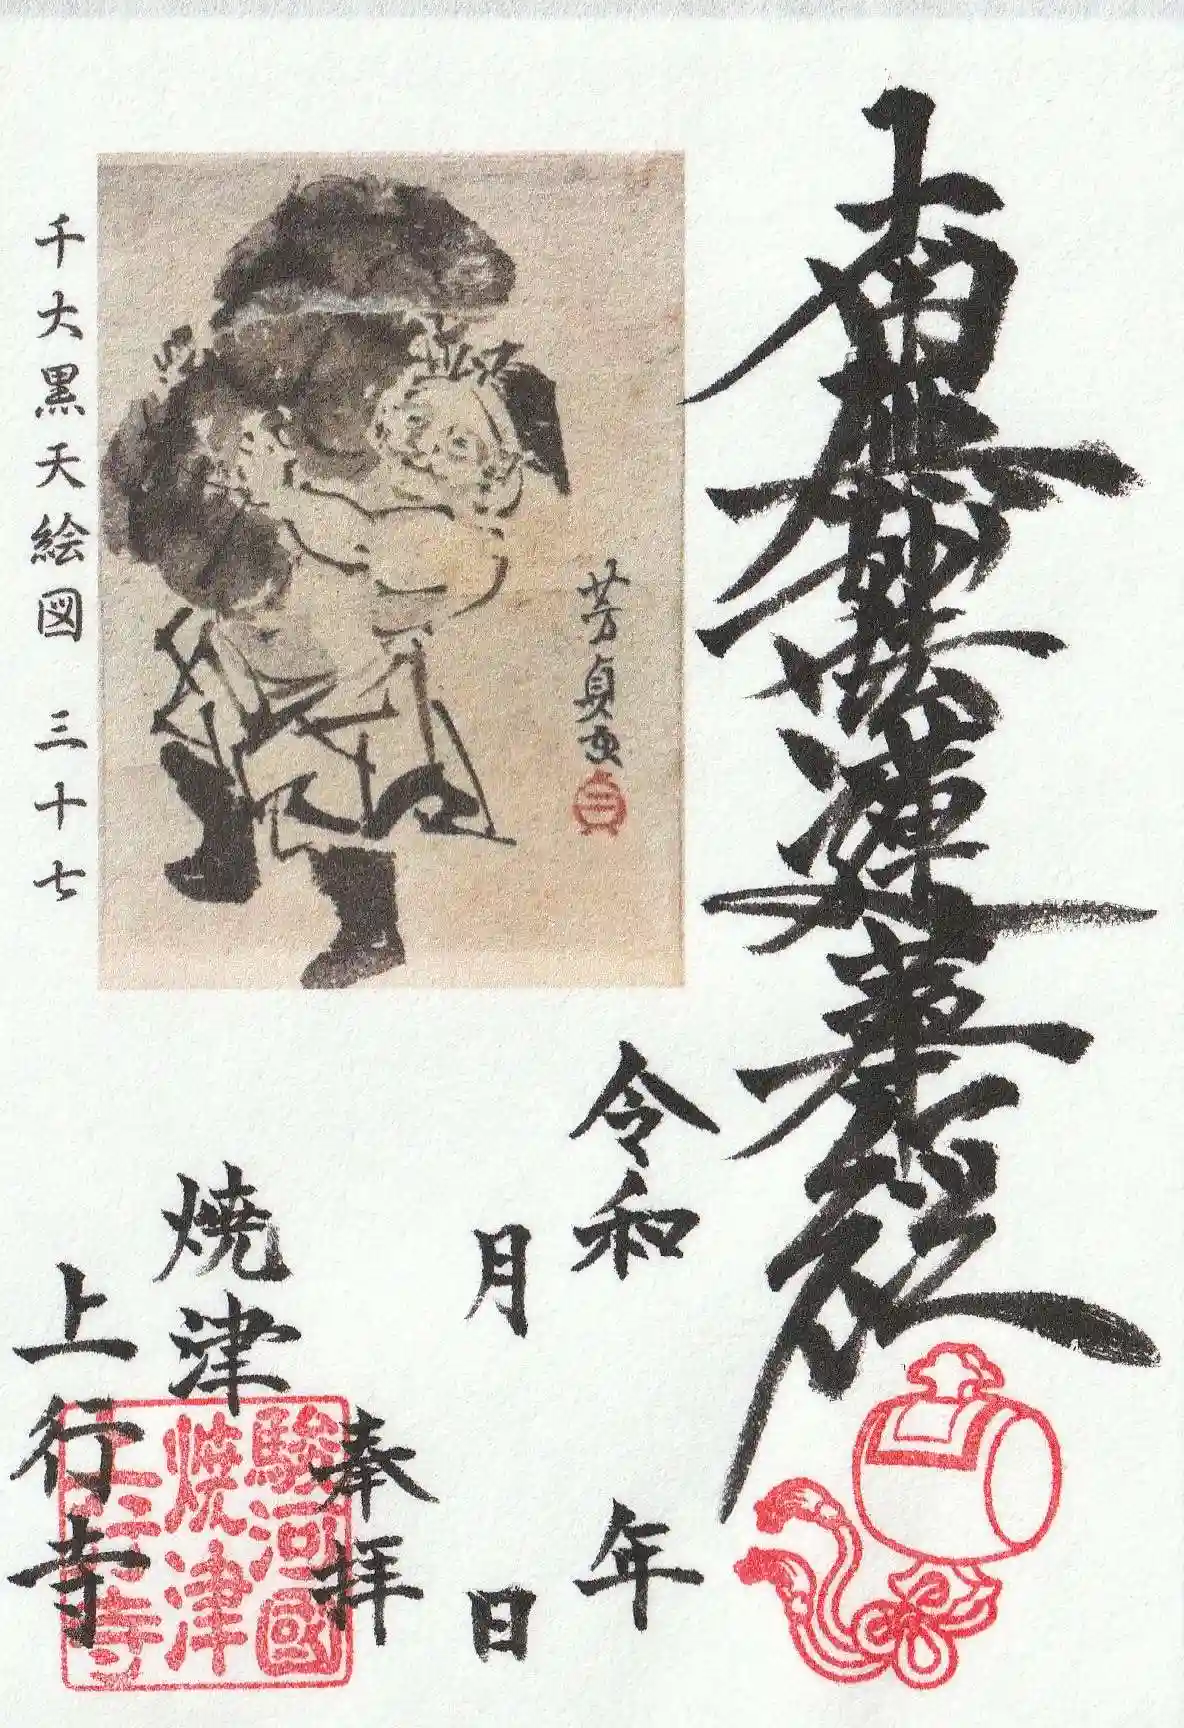 南無妙法蓮華経
芳貞画
千大黒天絵図 三十七
令和 年
月 日
奉拝
焼津
上行寺
駿河國
焼津
上行寺